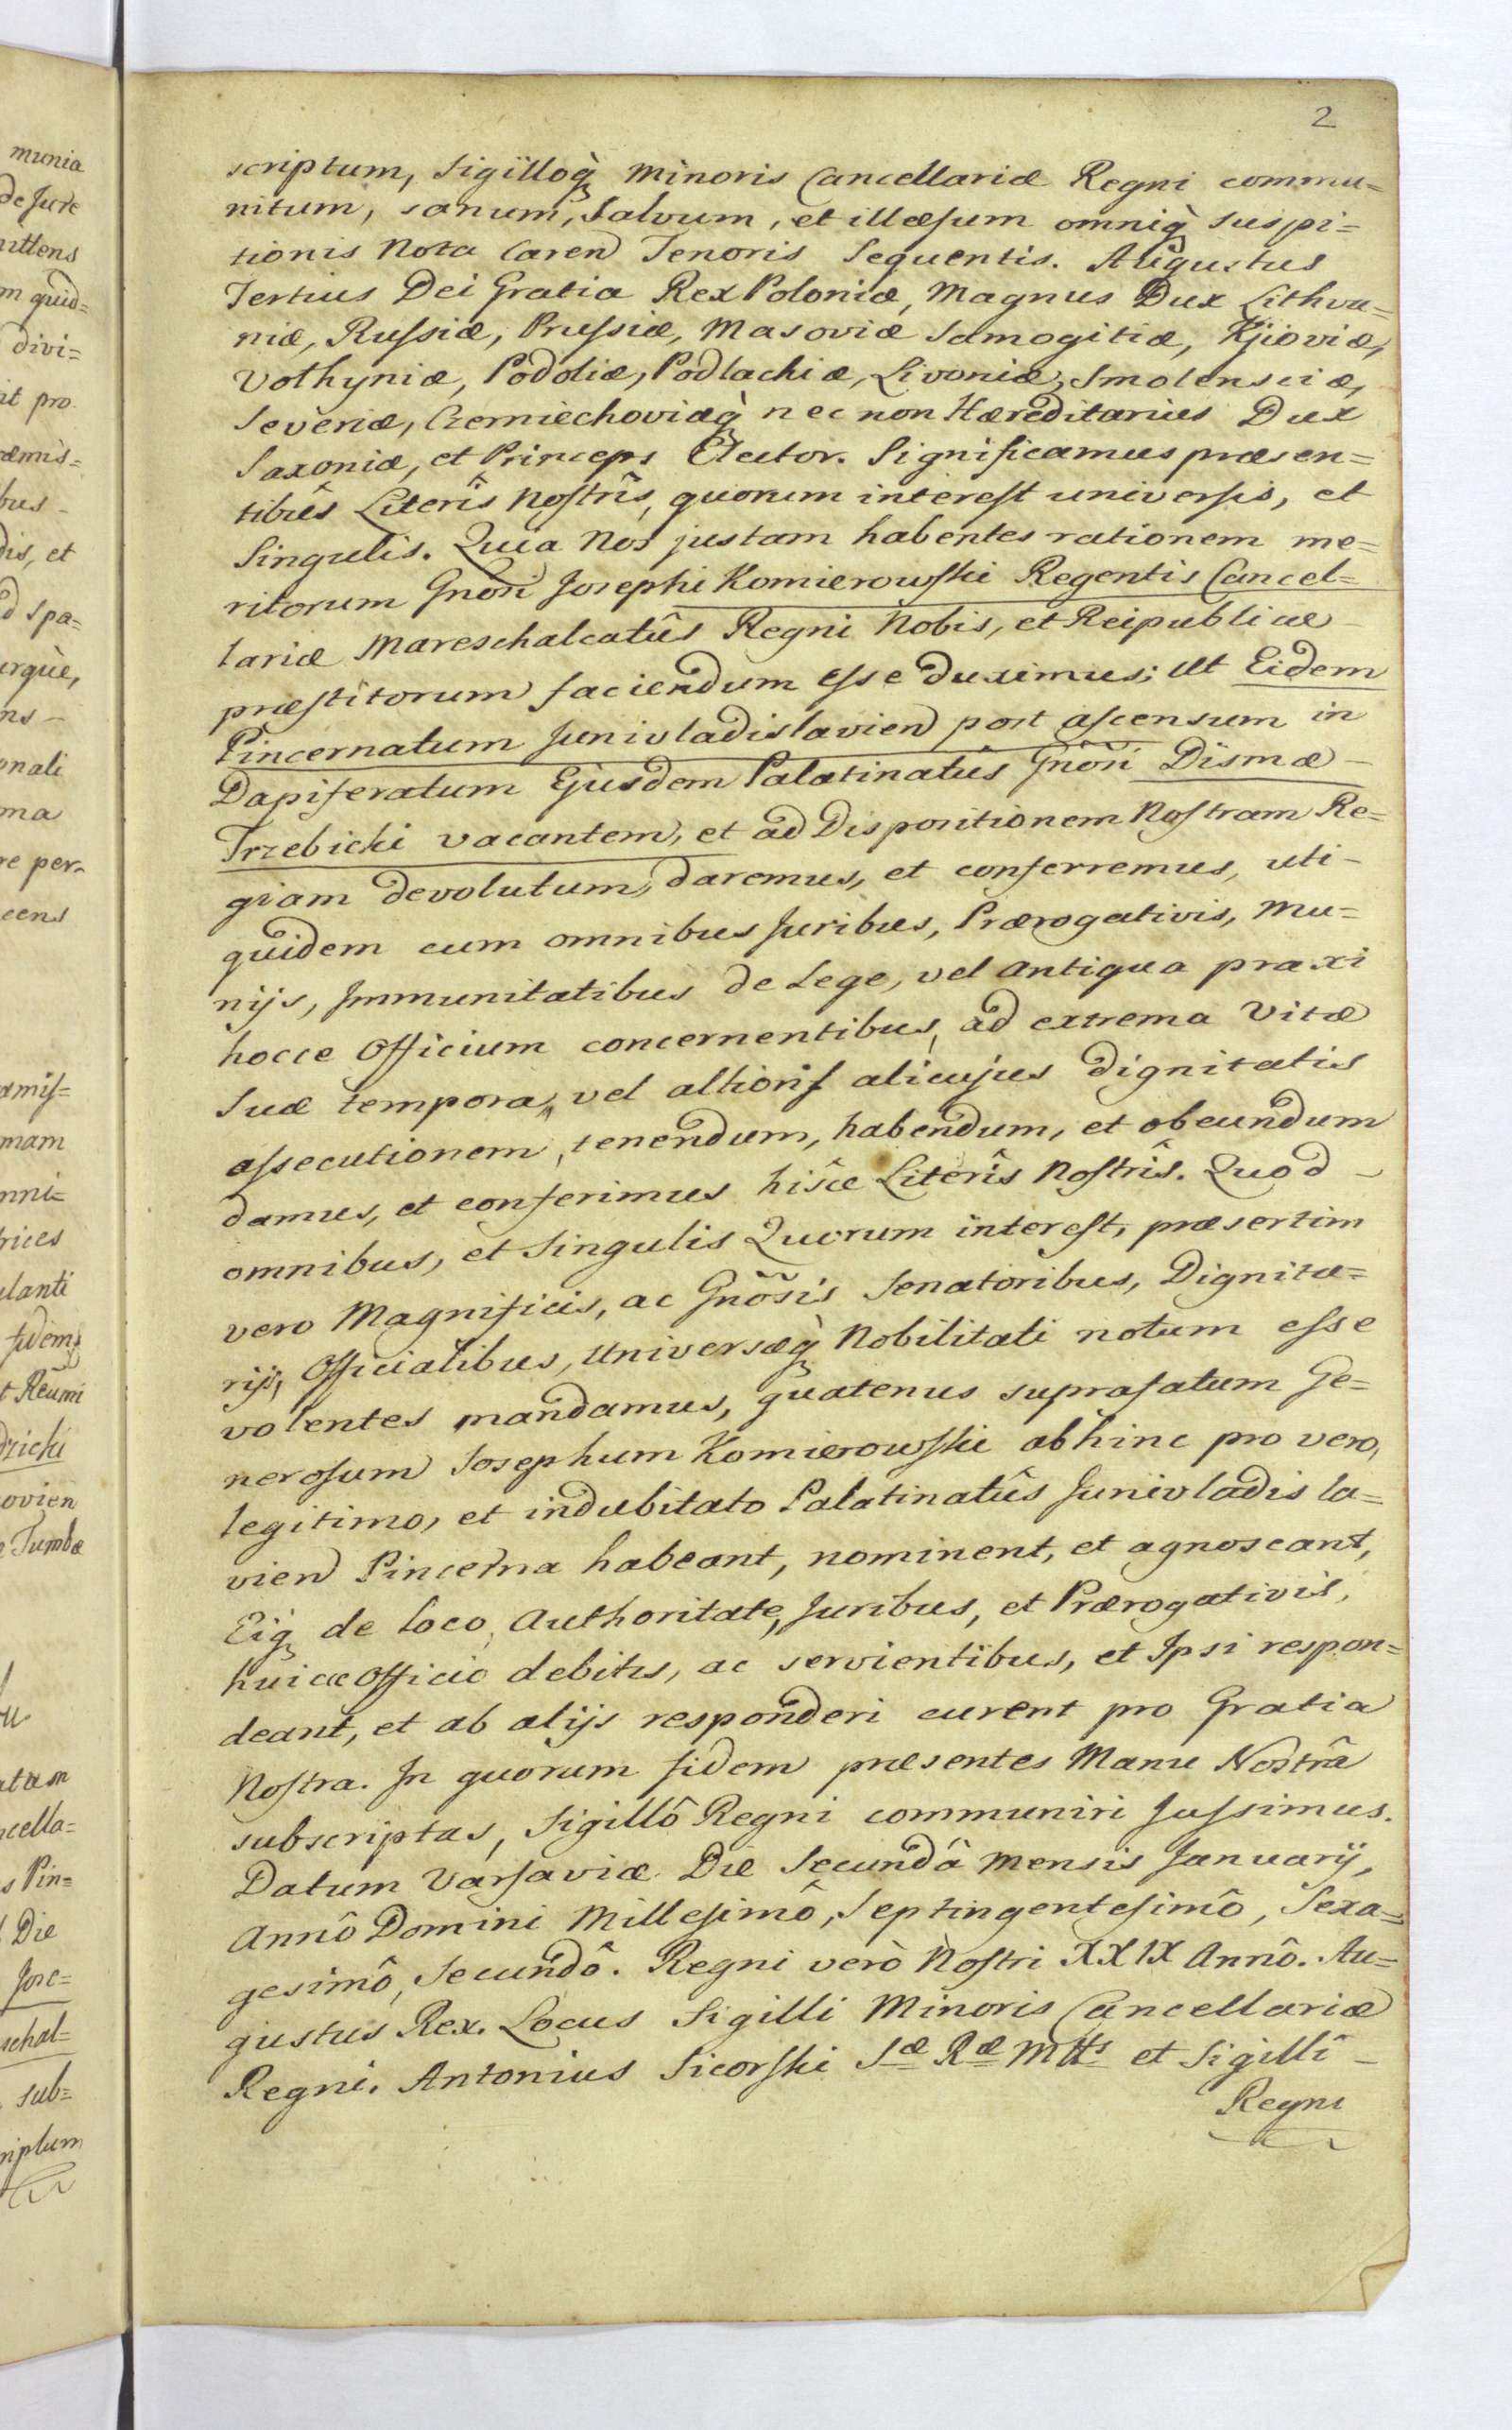 2
scriptum, Sigilloq̀ Minoris Cancellariæ Regni commu=
nitum, sanum, Salvum, et illæsum omniq̀ suspi=
tionis Nota Caren Tenoris Sequentis. Augustus
Tertius Dei Gratia Rex Poloniæ, Magnus Dux Lithva=
niæ, Russiæ, Prussiæ, Masoviæ Samogitiæ, Kijoviæ,
Volhyniæ, Podoliæ, Podlachiæ, Livoniæ, Smolensciæ,
Severiæ, Czerniechoviæq̀ nec non Hæreditarius Dux
Saxoniæ, et Princeps Elector. Significamus præsen=
tibûs Literîs Nostrîs, quorum interest universis, et
Singulis. Quia Nos justam habentes rationem me=
ritorum Gnõri Josephi Komierowski Regentis Cancel=
lariæ Mareschalcatûs Regni Nobis, et Reipublicæ -
præstitorum faciendum esse duximus; Ut Eidem
Pincernatum Junivladislavien post ascensum in
Dapiferatum Ejusdem Palatinatûs Gnõri Dismæ -
Trzebicki vacantem, et ad Dispositionem Nostram Re=
giam devolutum, daremus, et conferremus, uti -
quidem cum omnibus Juribus, Prærogativis, Mu=
nijs, Immunitatibus de Lege, vel antiqua praxi
hocce Officium concernentibus, ad extrema Vitæ
Suæ tempora, vel altioris alicujus dignitatis
assecutionem, tenendum, habendum, et obeundum
damus, et conferimus hisce Literîs Nostrîs. Quod -
omnibus, et Singulis Quorum interest, præsertim
vero Magnificis, ac Gnõsis Senatoribus, Dignita=
rijs, Officialibus, Universæq̀ Nobilitati notum esse
volentes mandamus, quatenus suprafatum Ge=
nerosum Josephum Komierowski abhinc pro vero,
legitimo, et indubitato Palatinatûs Junivladisla=
vien Pincerna habeant, nominent, et agnoscant,
Eiq̀ de loco, Authoritate, Juribus, et Prærogativis,
huicce Officio debitis, ac servientibus, et Ipsi respon=
deant, et ab alijs responderi curent pro Gratia
Nostra. In quorum fidem præsentes Manu Nostrâ
subscriptas, Sigillô Regni communiri Jussimus.
Datum Varsaviæ Die Secundâ Mensis Januarij,
Annô Domini Millesimô, Septingentesimô, Sexa=
gesimô, Secundô. Regni verò Nostri XXIX Annô. Au=
gustus Rex. Locus Sigilli Minoris Cancellariæ
Regni. Antonius Sicorski Sæ Ræ Mttis et Sigilli -
Regni